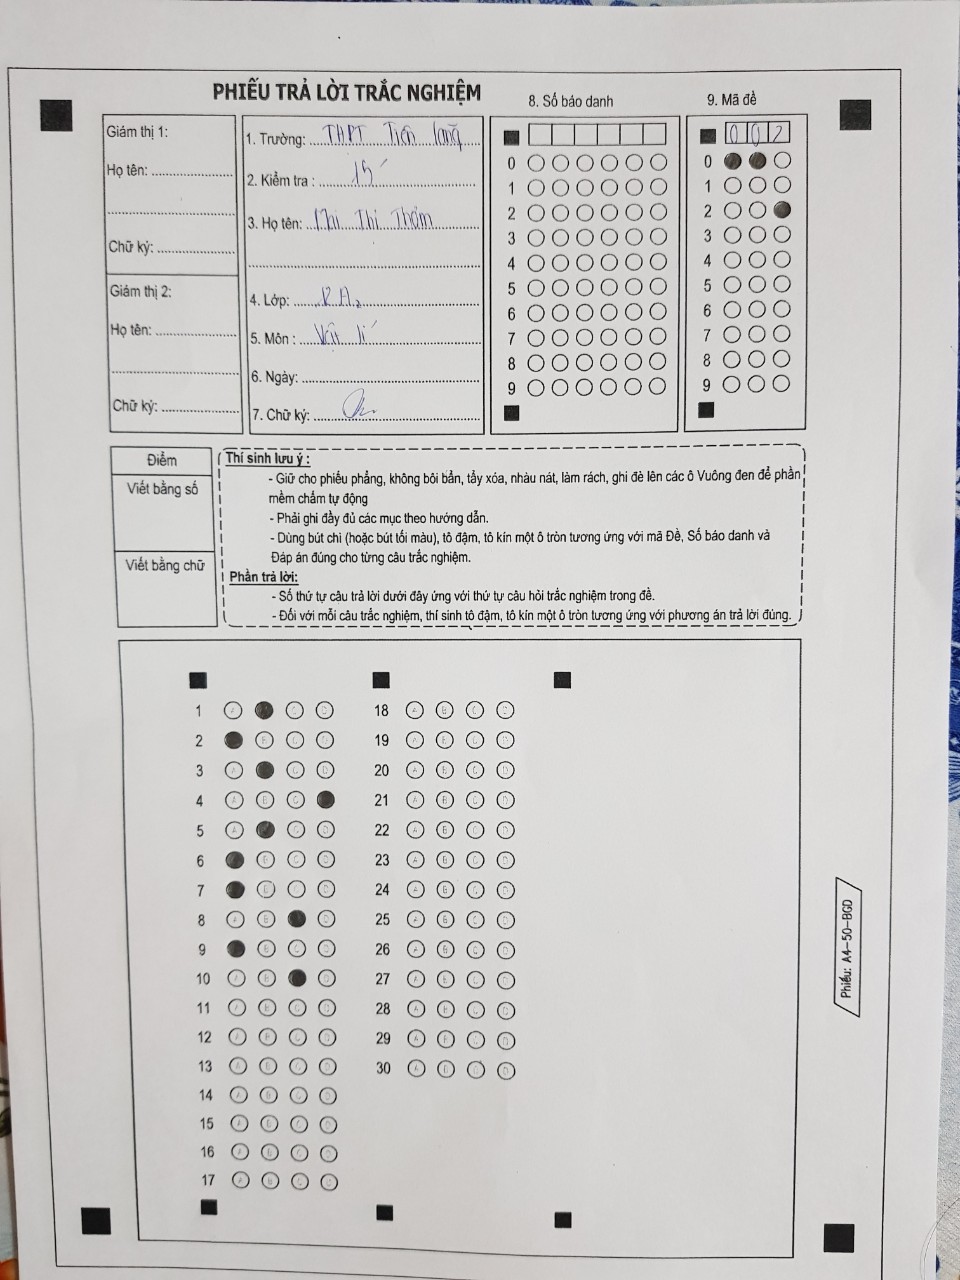 PHIẾU TRẢ LỜI TRẮC NGHIỆM
8. Số báo danh
9. Mã đề
Giám thị 1:
Họ tên:
Chữ ký:
Giám thị 2:
Họ tên:
Chữ ký:
1. Trường: THPT Tiên Lãng
2. Kiểm tra : 15'
3. Họ tên: Mai Thị Thơm
4. Lớp:
5. Môn : Vật lí
6. Ngày:
7. Chữ ký:
0
1
2
3
4
5
6
7
8
9
0 0 2
0
1
2
3
4
5
6
7
8
9
Điểm
Viết bằng số
Viết bằng chữ
Thí sinh lưu ý :
- Giữ cho phiếu phẳng, không bôi bẩn, tẩy xóa, nhàu nát, làm rách, ghi đè lên các ô Vuông đen để phần
mềm chấm tự động
- Phải ghi đầy đủ các mục theo hướng dẫn.
- Dùng bút chì (hoặc bút tối màu), tô đậm, tô kín một ô tròn tương ứng với mã Đề, Số báo danh và
Đáp án đúng cho từng câu trắc nghiệm.
Phần trả lời:
- Số thứ tự câu trả lời dưới đây ứng với thứ tự câu hỏi trắc nghiệm trong đề.
- Đối với mỗi câu trắc nghiệm, thí sinh tô đậm, tô kín một ô tròn tương ứng với phương án trả lời đúng.
1 A C D
2 B C D
3 A C D
4 A B C
5 A C D
6 B C D
7 B D
8 A B D
9 B C D
10 A B D
11 A B C D
12 A B C D
13 A B C D
14 A B C D
15 A B C D
16 A B C D
17 A B C D
18 A B C D
19 A B C D
20 A B C D
21 A B C D
22 A B C D
23 A B C D
24 A B C D
25 A B C D
26 A B C D
27 A B C D
28 A B C D
29 A B C D
30 A B C D
Phiếu: A4-50-BGD